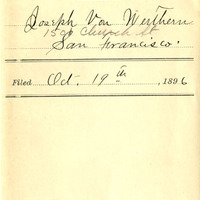 Joseph Von Werthern
1590 Church St
San Francisco.
Filed Oct. 19th, 1896